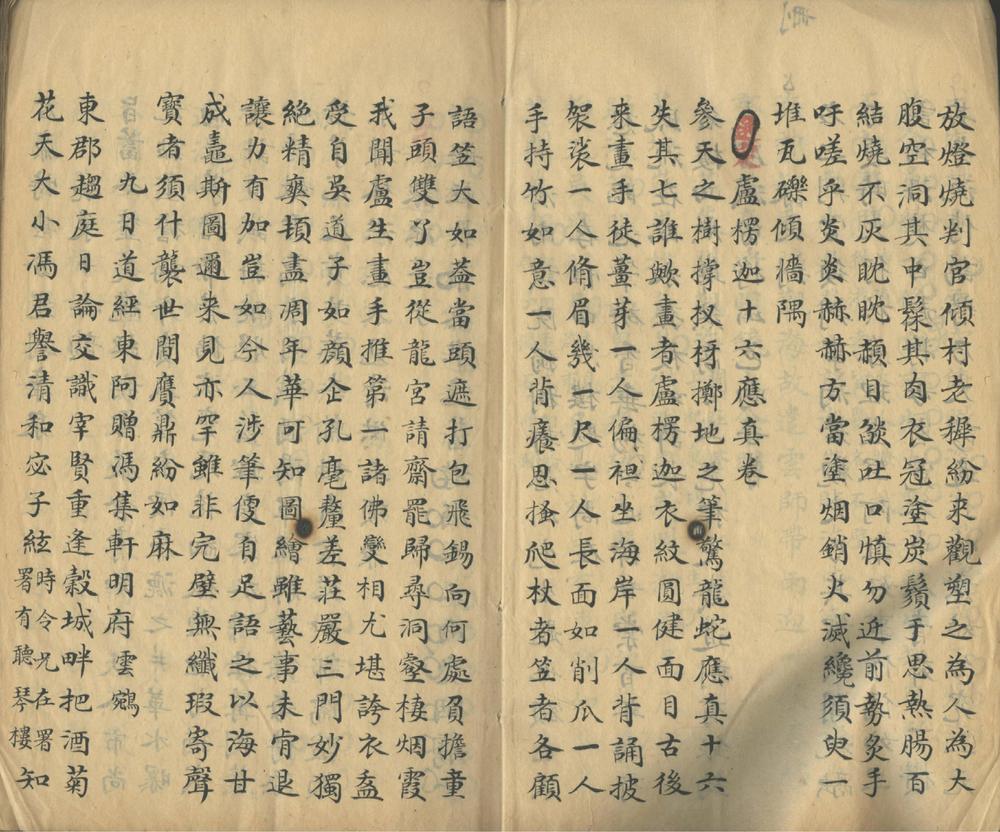 放燈燒判官傾村老穉紛来觀塑之為人空為大
腹空洞其中髹其肉衣冠塗炭鬚于思熱腸百
結燒不灰眈眈頳目燄吐口慎勿近前勢炙手
吁嗟乎炎炎赫赫方當塗烟銷火滅纔須臾一
堆瓦礫傾墻隅
盧楞迦十六應真卷
參天之樹撐杈枒擲地之筆驚龍蛇應真十六
失其七誰歟畫者盧楞迦衣紋圓健面目古後
來畫手徒薑芽一人偏袒坐海岸一人背誦披
袈裟一人脩眉幾一尺一人長面如削瓜一人
手持竹如意一人背癢思搔爬杖者笠者各顧
語笠大如葢當頭遮打包飛錫向何處負擔童
子頭雙丫豈從龍宮請齋罷歸尋洞壑棲烟霞
我聞盧生畫手推第一諸佛變相尤堪誇衣盋
受自吳道子如顏企孔毫釐差莊嚴三門妙獨
絕精奭頓盡凋年華可知圖繪雖藝事未肯退
讓力有加豈如今人涉筆便自足語之以海甘
成蠡斯圖邇来見亦罕雖非完璧無纖瑕寄聲
寶者須什襲世間贋鼎紛如麻
九日道經東阿贈馮集軒明府雲鵷
東郡趨庭日論交識宰賢重逢穀城畔把酒菊
花天大小馮君譽清和宓子絃時令兄在署署有聽琴樓知